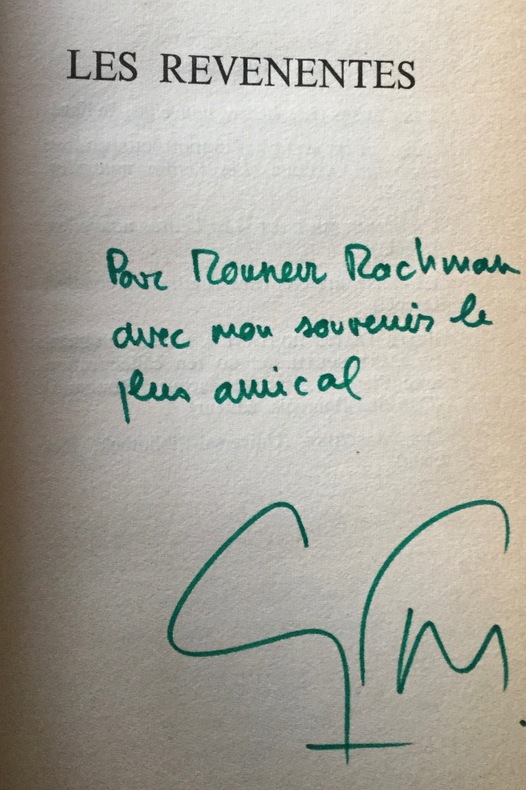 LES REVENENTES
Pour Monsieur Rachman
avec mon souvenir le
plus amical